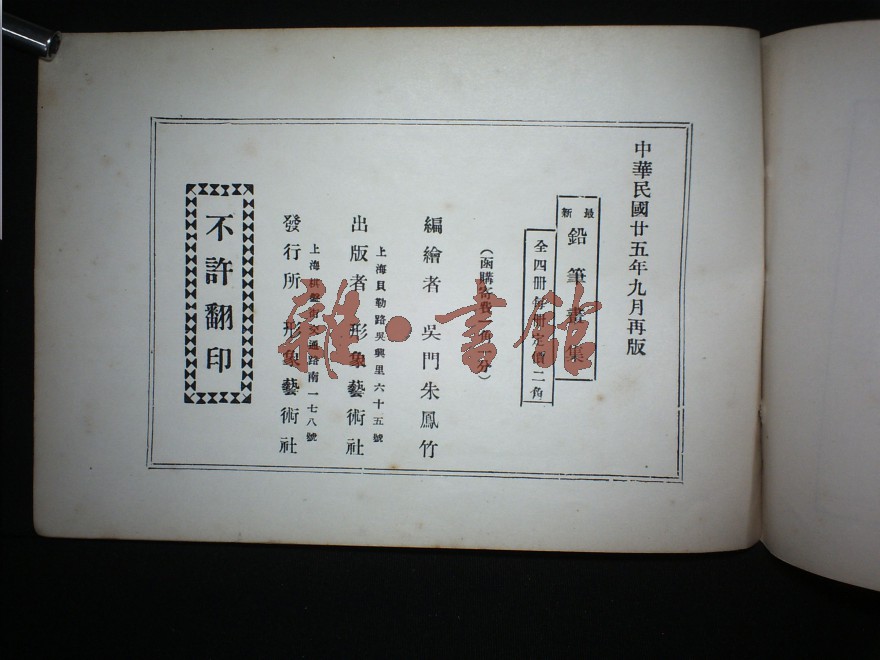 中華民國廿五年九月再版
最新鉛筆畫集
全四冊每冊定價二角
(函購寄費一角一分)
編繪者 吳門朱鳳竹
上海貝勒路吳興里六十五號
出版者 形象藝術社
上海棋盤街交通路南一七八號
發行所 形象藝術社
不許翻印
雜·書館